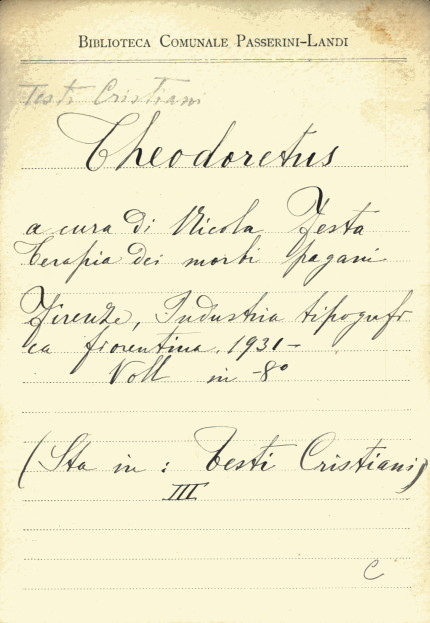 BIBLIOTECA COMUNALE PASSERINI-LANDI
Testi Cristiani
Theodoretus
a cura di Nicola Festa
Terapia dei morbi pagani
Firenze, Industria tipografi
ca fiorentina, 1931-
Voll in -8°
(Sta in : Testi Cristiani)
III
C